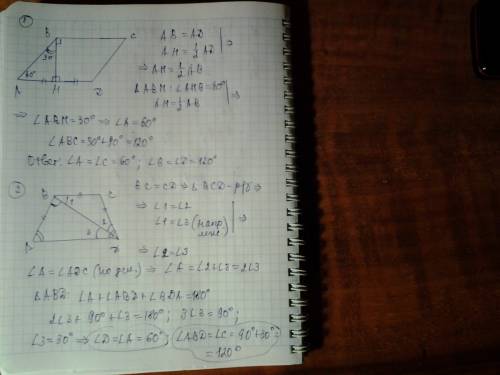 ①
B
C
30°
60°
A
H
D
AB = AD
AH = 1/2 AD | ⇒
⇒ AH = 1/2 AB
ΔABH: ∠AHB = 90°
AH = 1/2 AB | ⇒
⇒ ∠ABH = 30° ⇒ ∠A = 60°
∠ABC = 30° + 90° = 120°
Ответ: ∠A = ∠C = 60°; ∠B = ∠D = 120°
②
B
C
1
2
3
A
D
BC = CD ⇒ ΔBCD - р/б ⇒
⇒ ∠1 = ∠2
∠1 = ∠3 (накр. леж.) | ⇒
⇒ ∠2 = ∠3
∠A = ∠ADC ⇒ ∠A = ∠2 + ∠3 = 2∠3
ΔABD: ∠A + ∠ABD + ∠BDA = 180°
2∠3 + 90° + ∠3 = 180°; 3∠3 = 90°;
∠3 = 30° ⇒ ∠D = ∠A = 60°; ∠ABD = ∠C = 90° + 30° =
= 120°